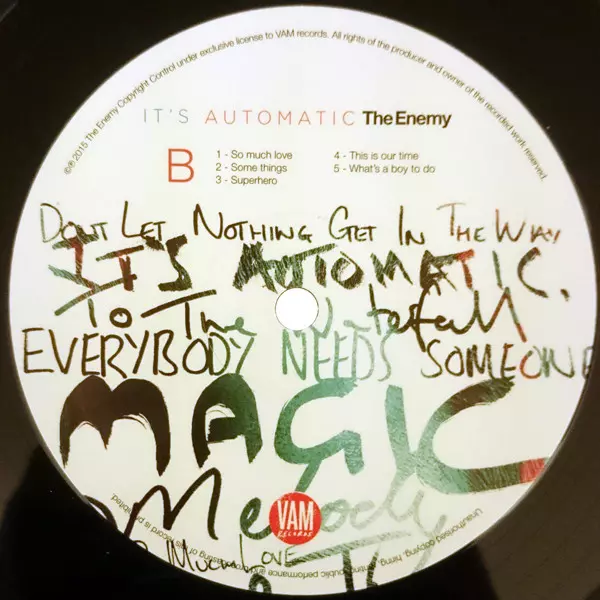 ©℗ 2015 The Enemy Copyright Control under exclusive license to VAM records. All rights of the producer and owner of the recorded work reserved.
IT'S AUTOMATIC The Enemy
B
1 - So much love
2 - Some things
3 - Superhero
4 - This is our time
5 - What's a boy to do
DON'T LET NOTHING GET IN THE WAY
IT'S AUTOMATIC.
To The Waterfall
EVERYBODY NEEDS SOMEONE
MAGIC
Melody
VAM
RECORDS
MUCH LOVE
Unauthorised copying, hiring,
public performance and
of this record is prohibited.